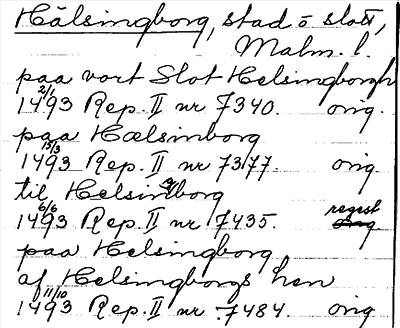 Hälsingborg, stad o slott,
Malm. l.
paa vort Slot Helsingborgh
1493 2/1 Rep. II nr 7340. orig.
paa Hælsinborg
1493 15/3 Rep. II nr 7377. orig
til Helsingborg
1493 6/6 Rep. II nr 7435. regest
paa Helsingborg
af Helsingborgs hen
1493 11/10 Rep. II nr 7484. orig